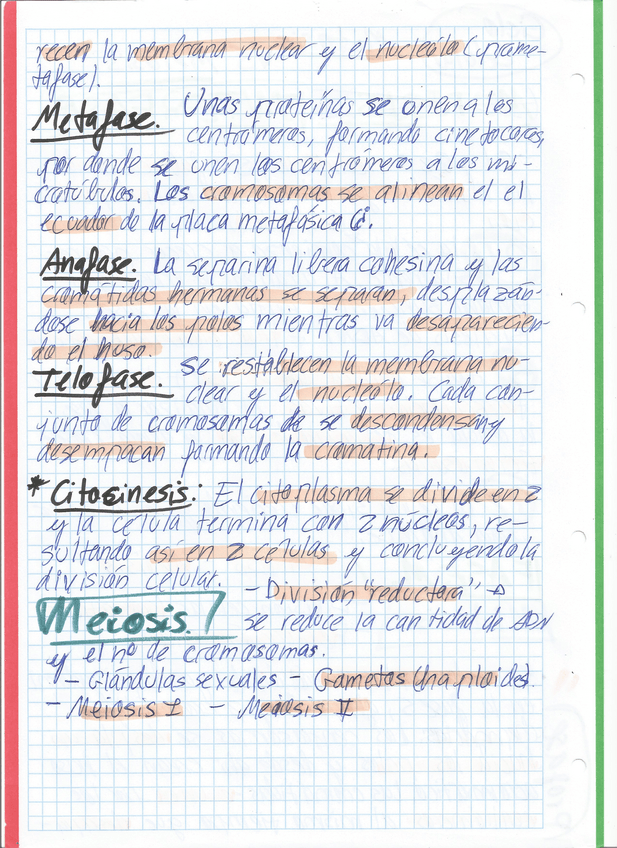 recen la membrana nuclear y el nucleólo (prome-
tafase).
Metafase. Unas proteínas se unen a los
centrómeros, formando cinetocoros,
por donde se unen los centrómeros a los mi-
crotúbulos. Los cromosomas se alinean el el
ecuador de la placa metafásica
Anafase. La separina libera cohesina y las
cromátidas hermanas se separan, desplazán-
dose hacia los polos mientras va desaparecien-
do el huso.
Telofase. se restablecen la membrana nu-
clear y el nucleólo. Cada con-
junto de cromosomas de se descondensan y
desempacan formando la cromatina.
* Citocinesis: El citoplasma se divide en 2
y la célula termina con 2 núcleos, re-
sultando así en 2 células y concluyendo la
división celular.
- División "reductora" →
Meiosis. se reduce la cantidad de ADN
y el nº de cromosomas.
- Glándulas sexuales - Gametos (haploides).
- Meiosis I - Meiosis II